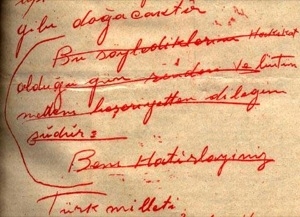 gibi doğacaktır
Bu söylediklerim Hakikat
olduğu gün senden ve bütün
medeni beşeriyetten dileğim
şudur:
Beni Hatırlayınız
Türk milleti